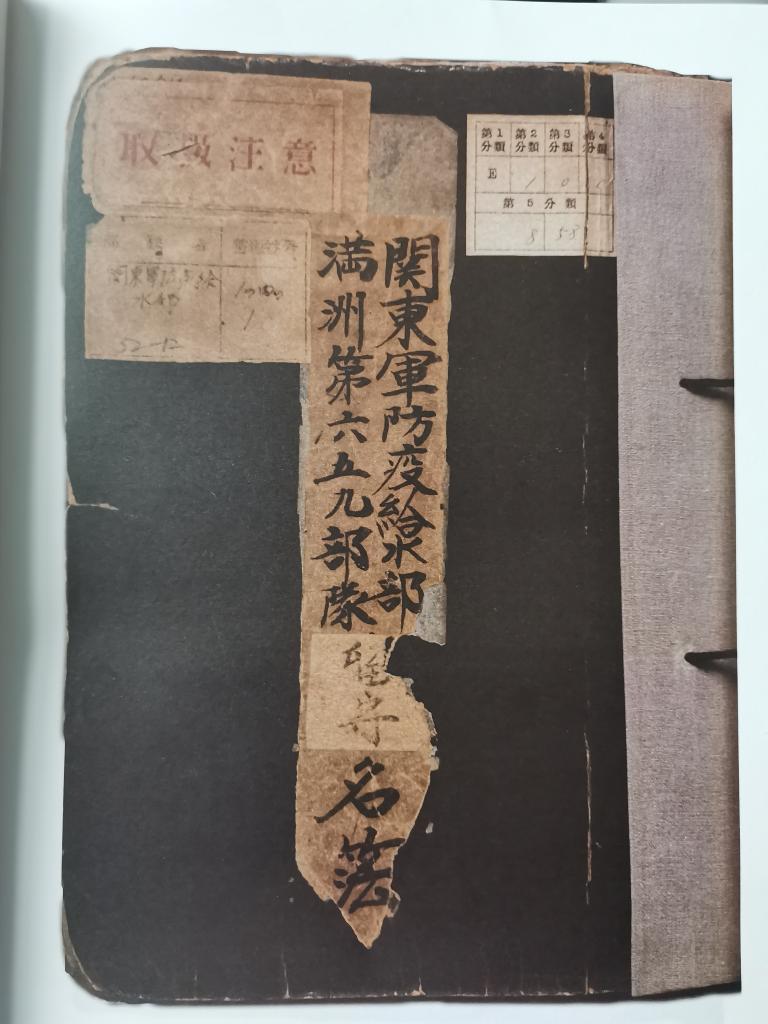 取扱注意
第1分類 第2分類 第3分類 第4分類
E 1 0
第5分類
8 58
関東軍防疫給水部
52-12
関東軍防疫給水部
満洲第六五九部隊
留守
名簿